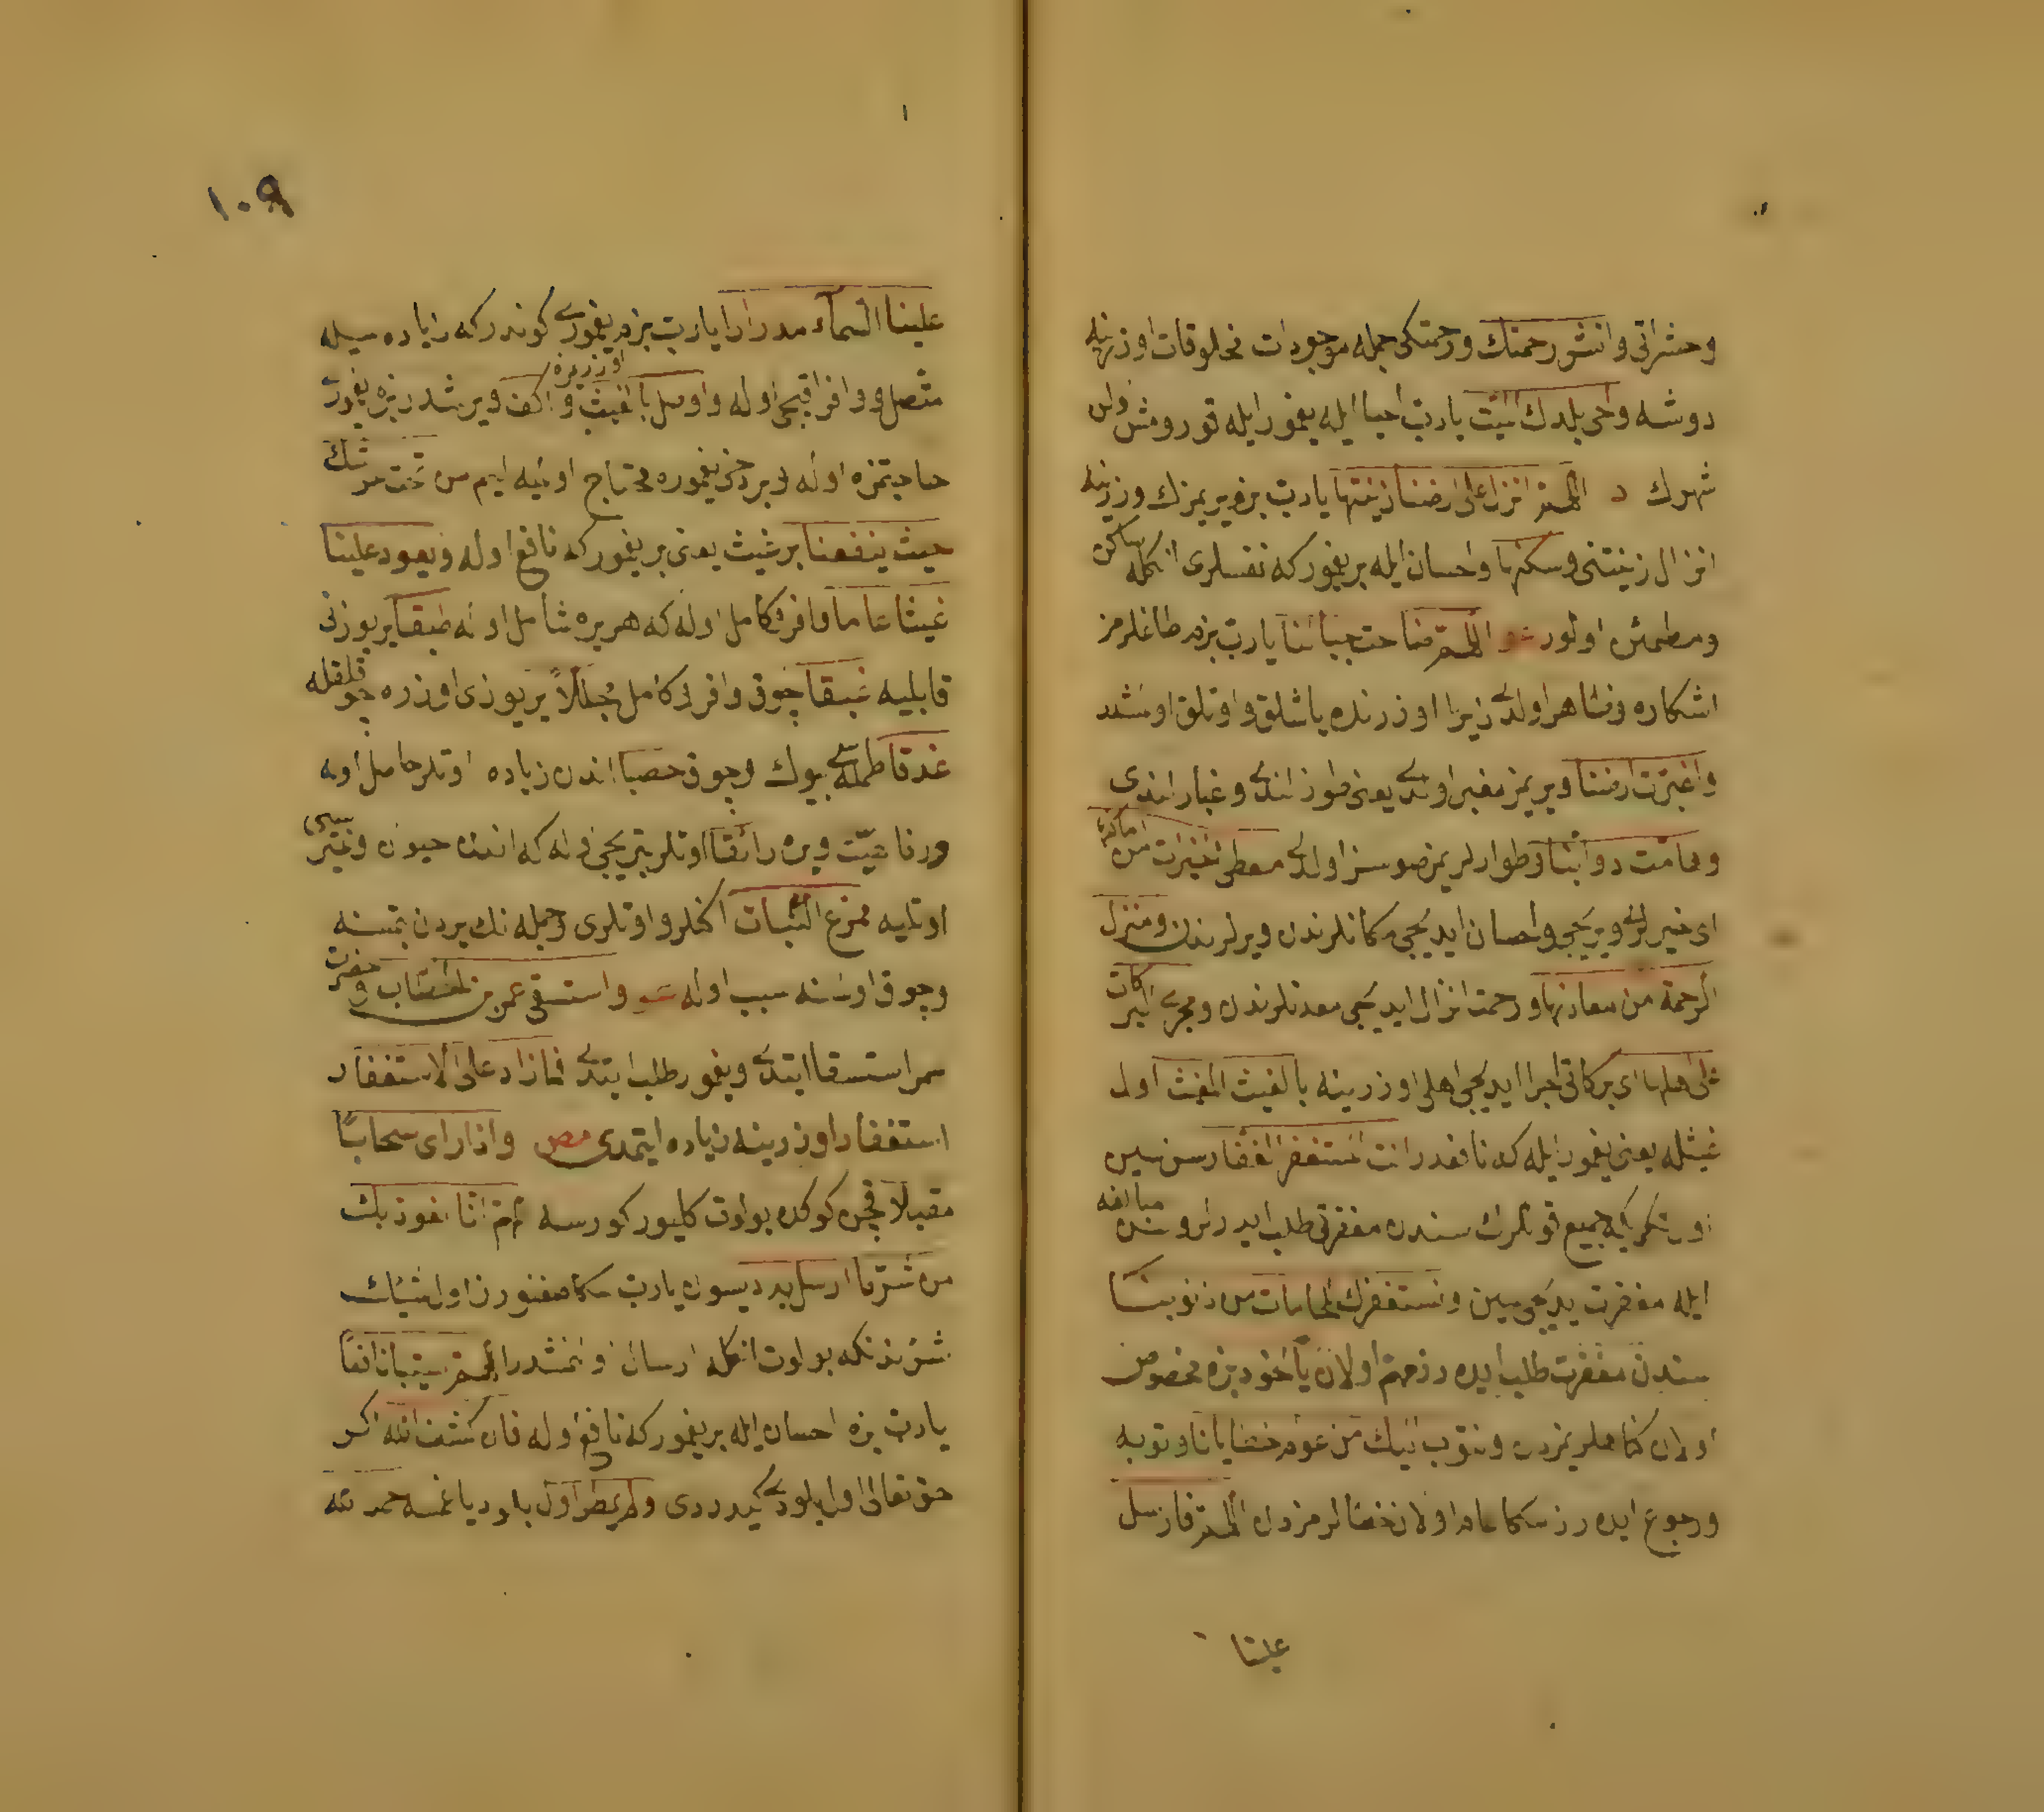 وحشراتی وانشر رحمتك ورحمتکی جمله موجودات مخلوقات اوزرینه
دوشه واحی بلدك المیت یارب احیا ایله یغمور ایله قورومش اولن
شهرك د اللهم انزل علی ارضنا زینتها یارب بزم یریمزك اوزرینه
انزال زینتنی وسکنها واحسان ایله بریغمور که نفسلری انکله ساکن
ومطمئن اولور اللهم ضاحت جبالنا یارب بزم طاغلرمز
اشکاره وظاهر اولدی زیرا اوزرنده یاشلق واوتلق اولمشدر
واغبرت ارضنا ویریمز مغبر اولدی یعنی طوز اندی وغبار اندی
وهامت دوابنا وطوارلریمز صوسز اولدی معطی الخیرات من اماکنها
ای خیرلری ویریجی واحسان ایدیجی مکانلرندن ویرلرندن ومنزل
الرحمة من معادنها ورحمت انزال ایدیجی معدنلرندن ومجری البرکات
علی اهلها ای برکاتی اجرا ایدیجی اهلی اوزرینه بالغیث المغیث اول
غیثله یعنی یغمور ایله که نافعدر انت المستغفر الغفار سن سین
اول تکری که جمیع قوللرك سندن مغفرتی طلب ایدرلر وسنده مبالغه
ایله مغفرت یدیجی سین ونستغفرك للحامات من ذنوبنا
سندن مغفرت طلب ایده رز مهم اولان یاخود بزه مخصوص
اولان کناهلریمزدن ونتوب الیك من عوام خطایانا وتوبه
ورجوع ایده رز سکا عام اولان خطالرمزدن اللهم فارسل
علینا
١٠٩
علینا السماء مدرارا یارب بزم یغموری کوندر که زیاده سیله
متصل ووافر اقیجی اوله واوصل بالغیث واکف ویرشدر بزه یغمور اوزریزه
حاجتمزه اوله وبر دخی یغموره محتاج اولمیه ایم من تحت عرشك
حیث ینفعنا بر غیث یعنی بر یغمور که نافع اوله ویعود علینا
غیثا عاما وافر وکامل اوله که هر یره شامل اوله طبقا یریوزنی
قابلیه غبقا چوق وافر وکامل مجللاً یریوزی اوزره
غدقا طمله سی بیوك وچوق خصبا اندن زیاده اوتلر حاصل اوله
ورفاهیت ویره راتعا اوتلر بتریجی اوله که انده حیوان
اوتلیه ممرع النبات اکینلرو اوتلری وجمله نك یردن بتمسنه
وچوق اولمسنه سبب اوله واستسقی عمر بن الخطاب وحضرت
عمر استسقا ایتدی ویغمور طلب ایتدی فمازاد علی الاستغفار
استغفار اوزرینه زیاده ایتمدی مص واذا رای سحاباً
مقبلا قچن کوکده بولوت کلیور کورسه اللهم انا نعوذ بك
من شر ما ارسل به دیسون یارب سکا صغنورز اول شیئك
شرندنکه بو بلوت انکله ارسال اولنمشدر اللهم سیبا نافعاً
یارب بزه احسان ایله بر یغمور که نافع اوله فان کشف الله اکر
حق تعالی اول بلودی کیدردی ولم یمطر اول بلود یاغمسه حمد لله